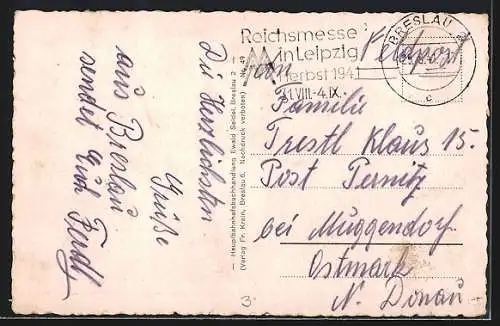 Die Herzlichsten
Grüße
aus Breslau
sendet Euch Ferdl
Hauptbahnhofsbuchhandlung Ewald Seidel, Breslau 2 — Nr. 49
(Verlag Fr. Krein, Breslau 6. Nachdruck verboten)
Reichsmesse
in Leipzig
Herbst 194
31.VIII.-4.IX.
BRESLAU
c
Feldpost
Familie
Trestl Klaus 15.
Post Pernitz
bei Muggendorf
Ostmark
N. Donau
3.